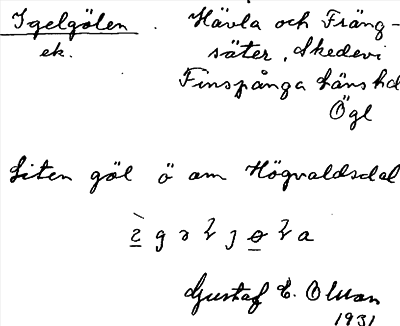 Igelgölen . Hävla och Fräng-
ek. säter, Skedevi
Finspånga länshd
Ögl
Liten göl ö om Högvaldsdal
Gustaf E. Olson
1931